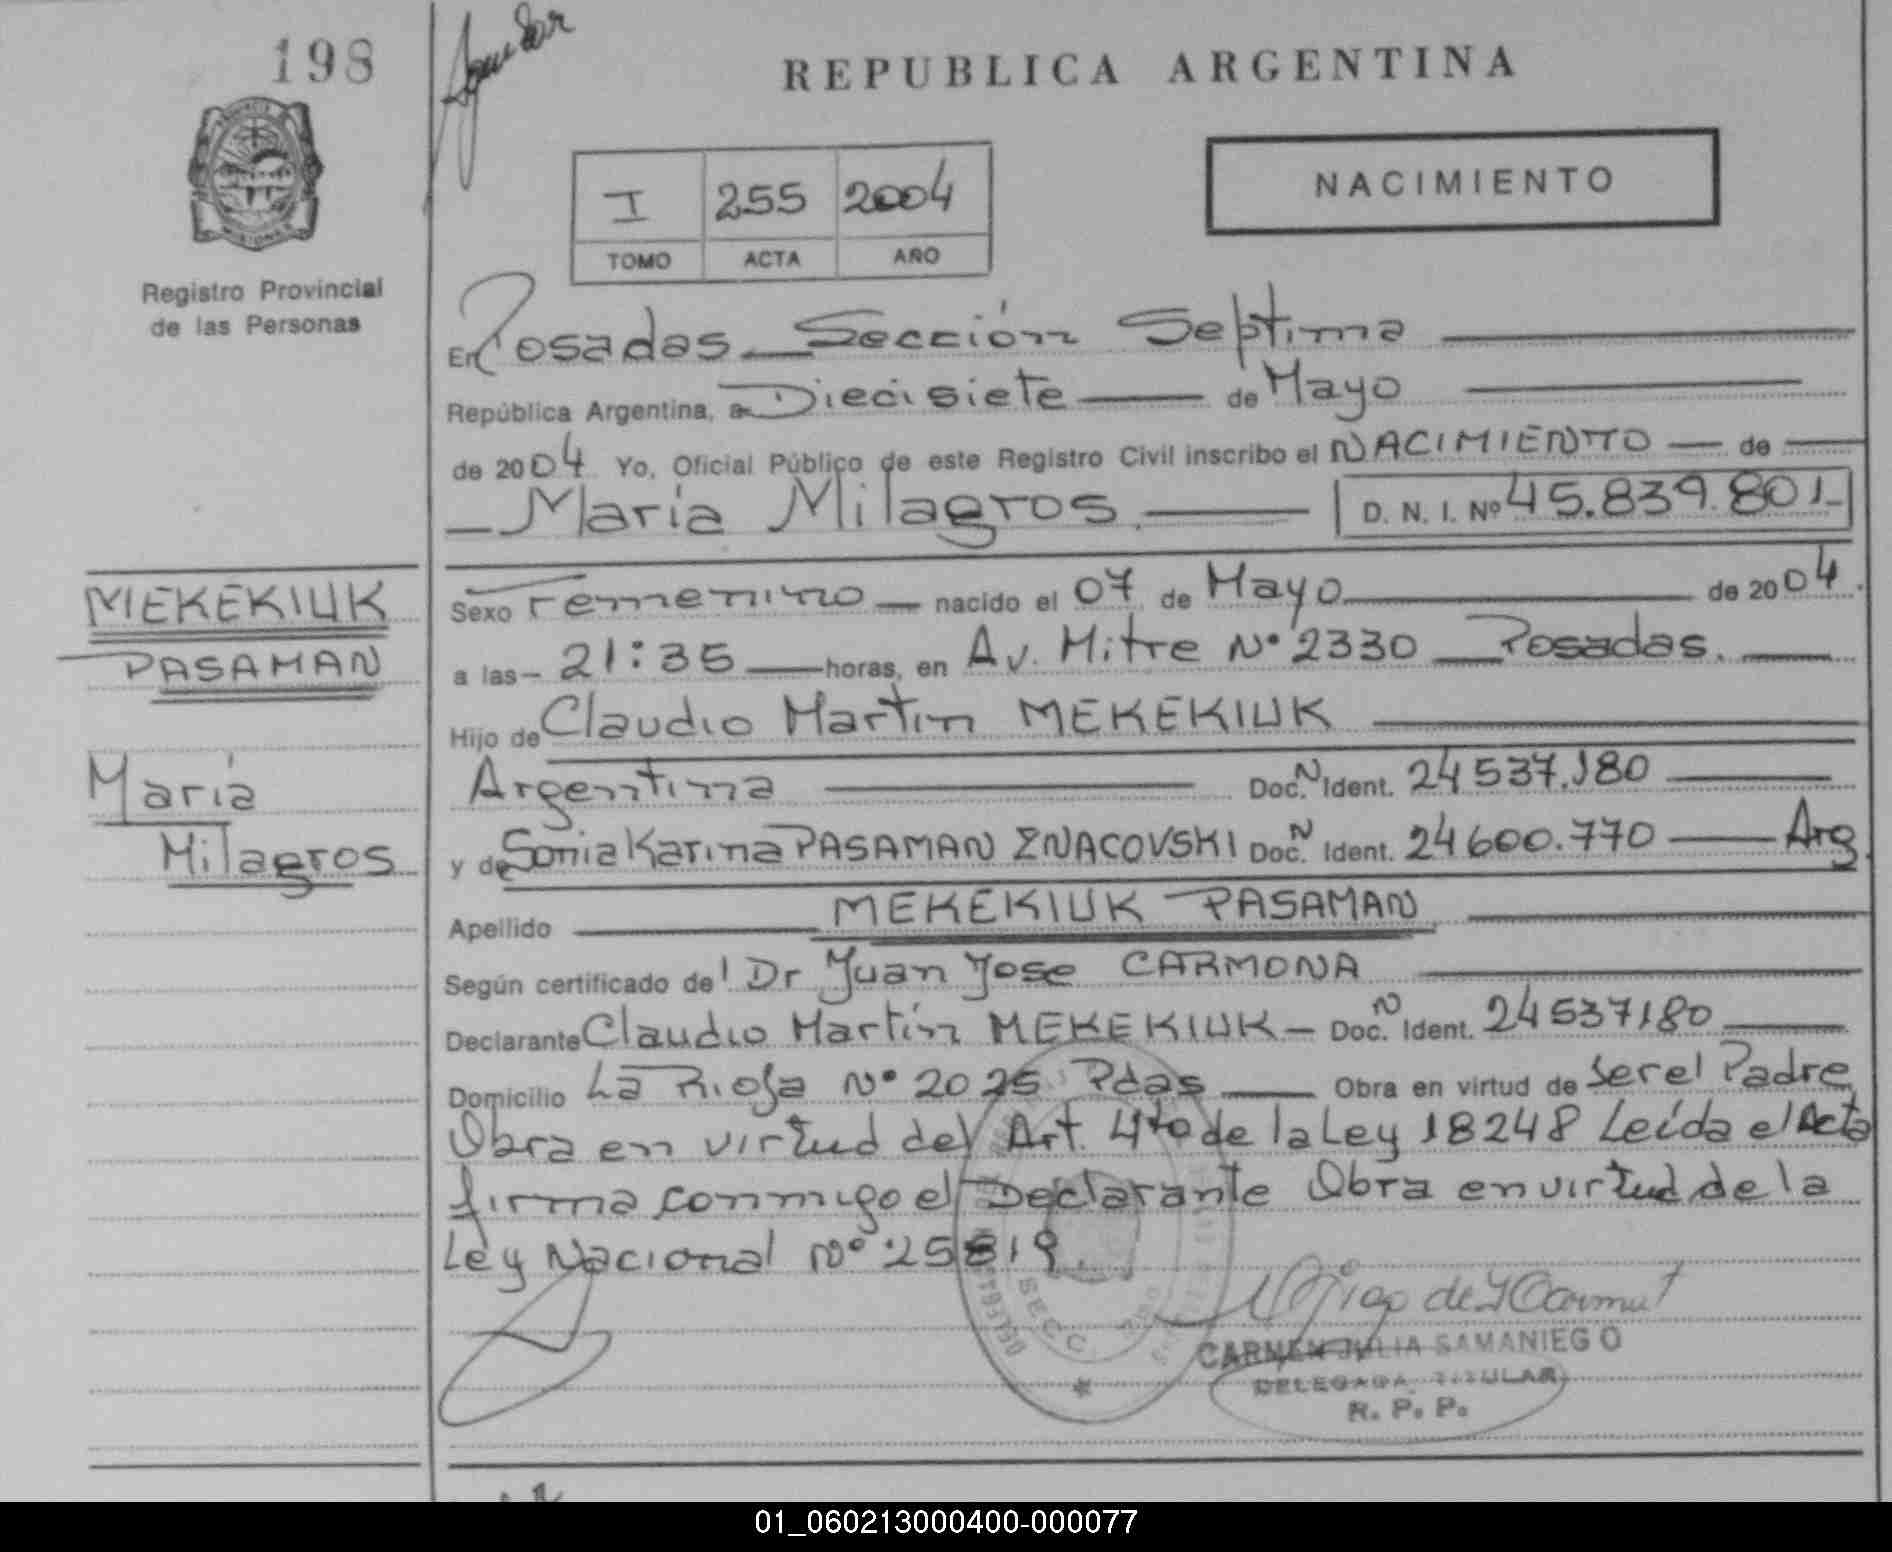 198
REPUBLICA ARGENTINA
I 255 2004
TOMO ACTA AÑO
NACIMIENTO
Registro Provincial
de las Personas
En Posadas Sección Septima
República Argentina, a Diecisiete de Mayo
de 2004 Yo, Oficial Público de este Registro Civil inscribo el NACIMIENTO de
María Milagros. D. N. I. Nº 45.839.801
MEKEKIUK
PASAMAN
María
Milagros
Sexo Femenino nacido el 07 de Mayo de 2004.
a las 21:35 horas, en Av. Mitre Nº 2330 Posadas.
Hijo de Claudio Martin MEKEKIUK
Argentina Doc. N Ident. 24537.180
y de Sonia Karina PASAMAN ZNACOVSKI Doc. N Ident. 24600.770 Arg.
Apellido MEKEKIUK PASAMAN
Según certificado del Dr Juan Jose CARMONA
Declarante Claudio Martín MEKEKIUK Doc. N Ident. 24537180
Domicilio La Rioja Nº 2025 Pdas Obra en virtud de Ser el Padre
Obra en virtud del Art. 4to de la Ley 18248 Leída el Acta
firma conmigo el Declarante Obra en virtud de la
Ley Nacional Nº 25819.
SECC.
CARMEN JULIA SAMANIEGO
DELEGADA TITULAR
R. P. P.
01_060213000400-000077